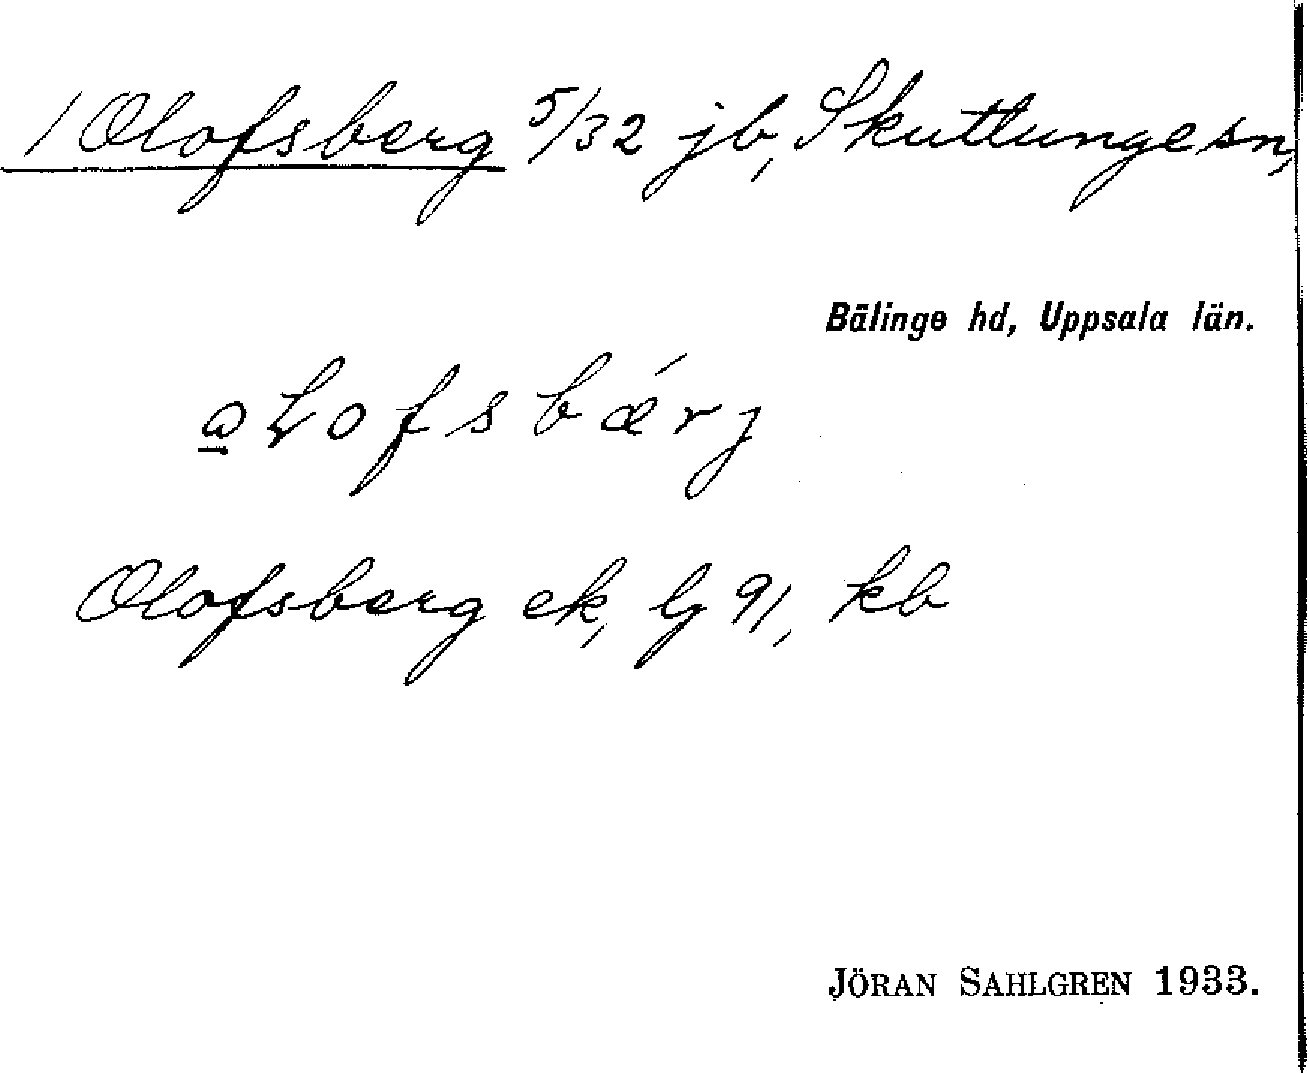 1 Olofsberg 5/32 jb, Skuttunge sn,
Bälinge hd, Uppsala län.
Olofsberg ek, lg 91, kb
JÖRAN SAHLGREN 1933.